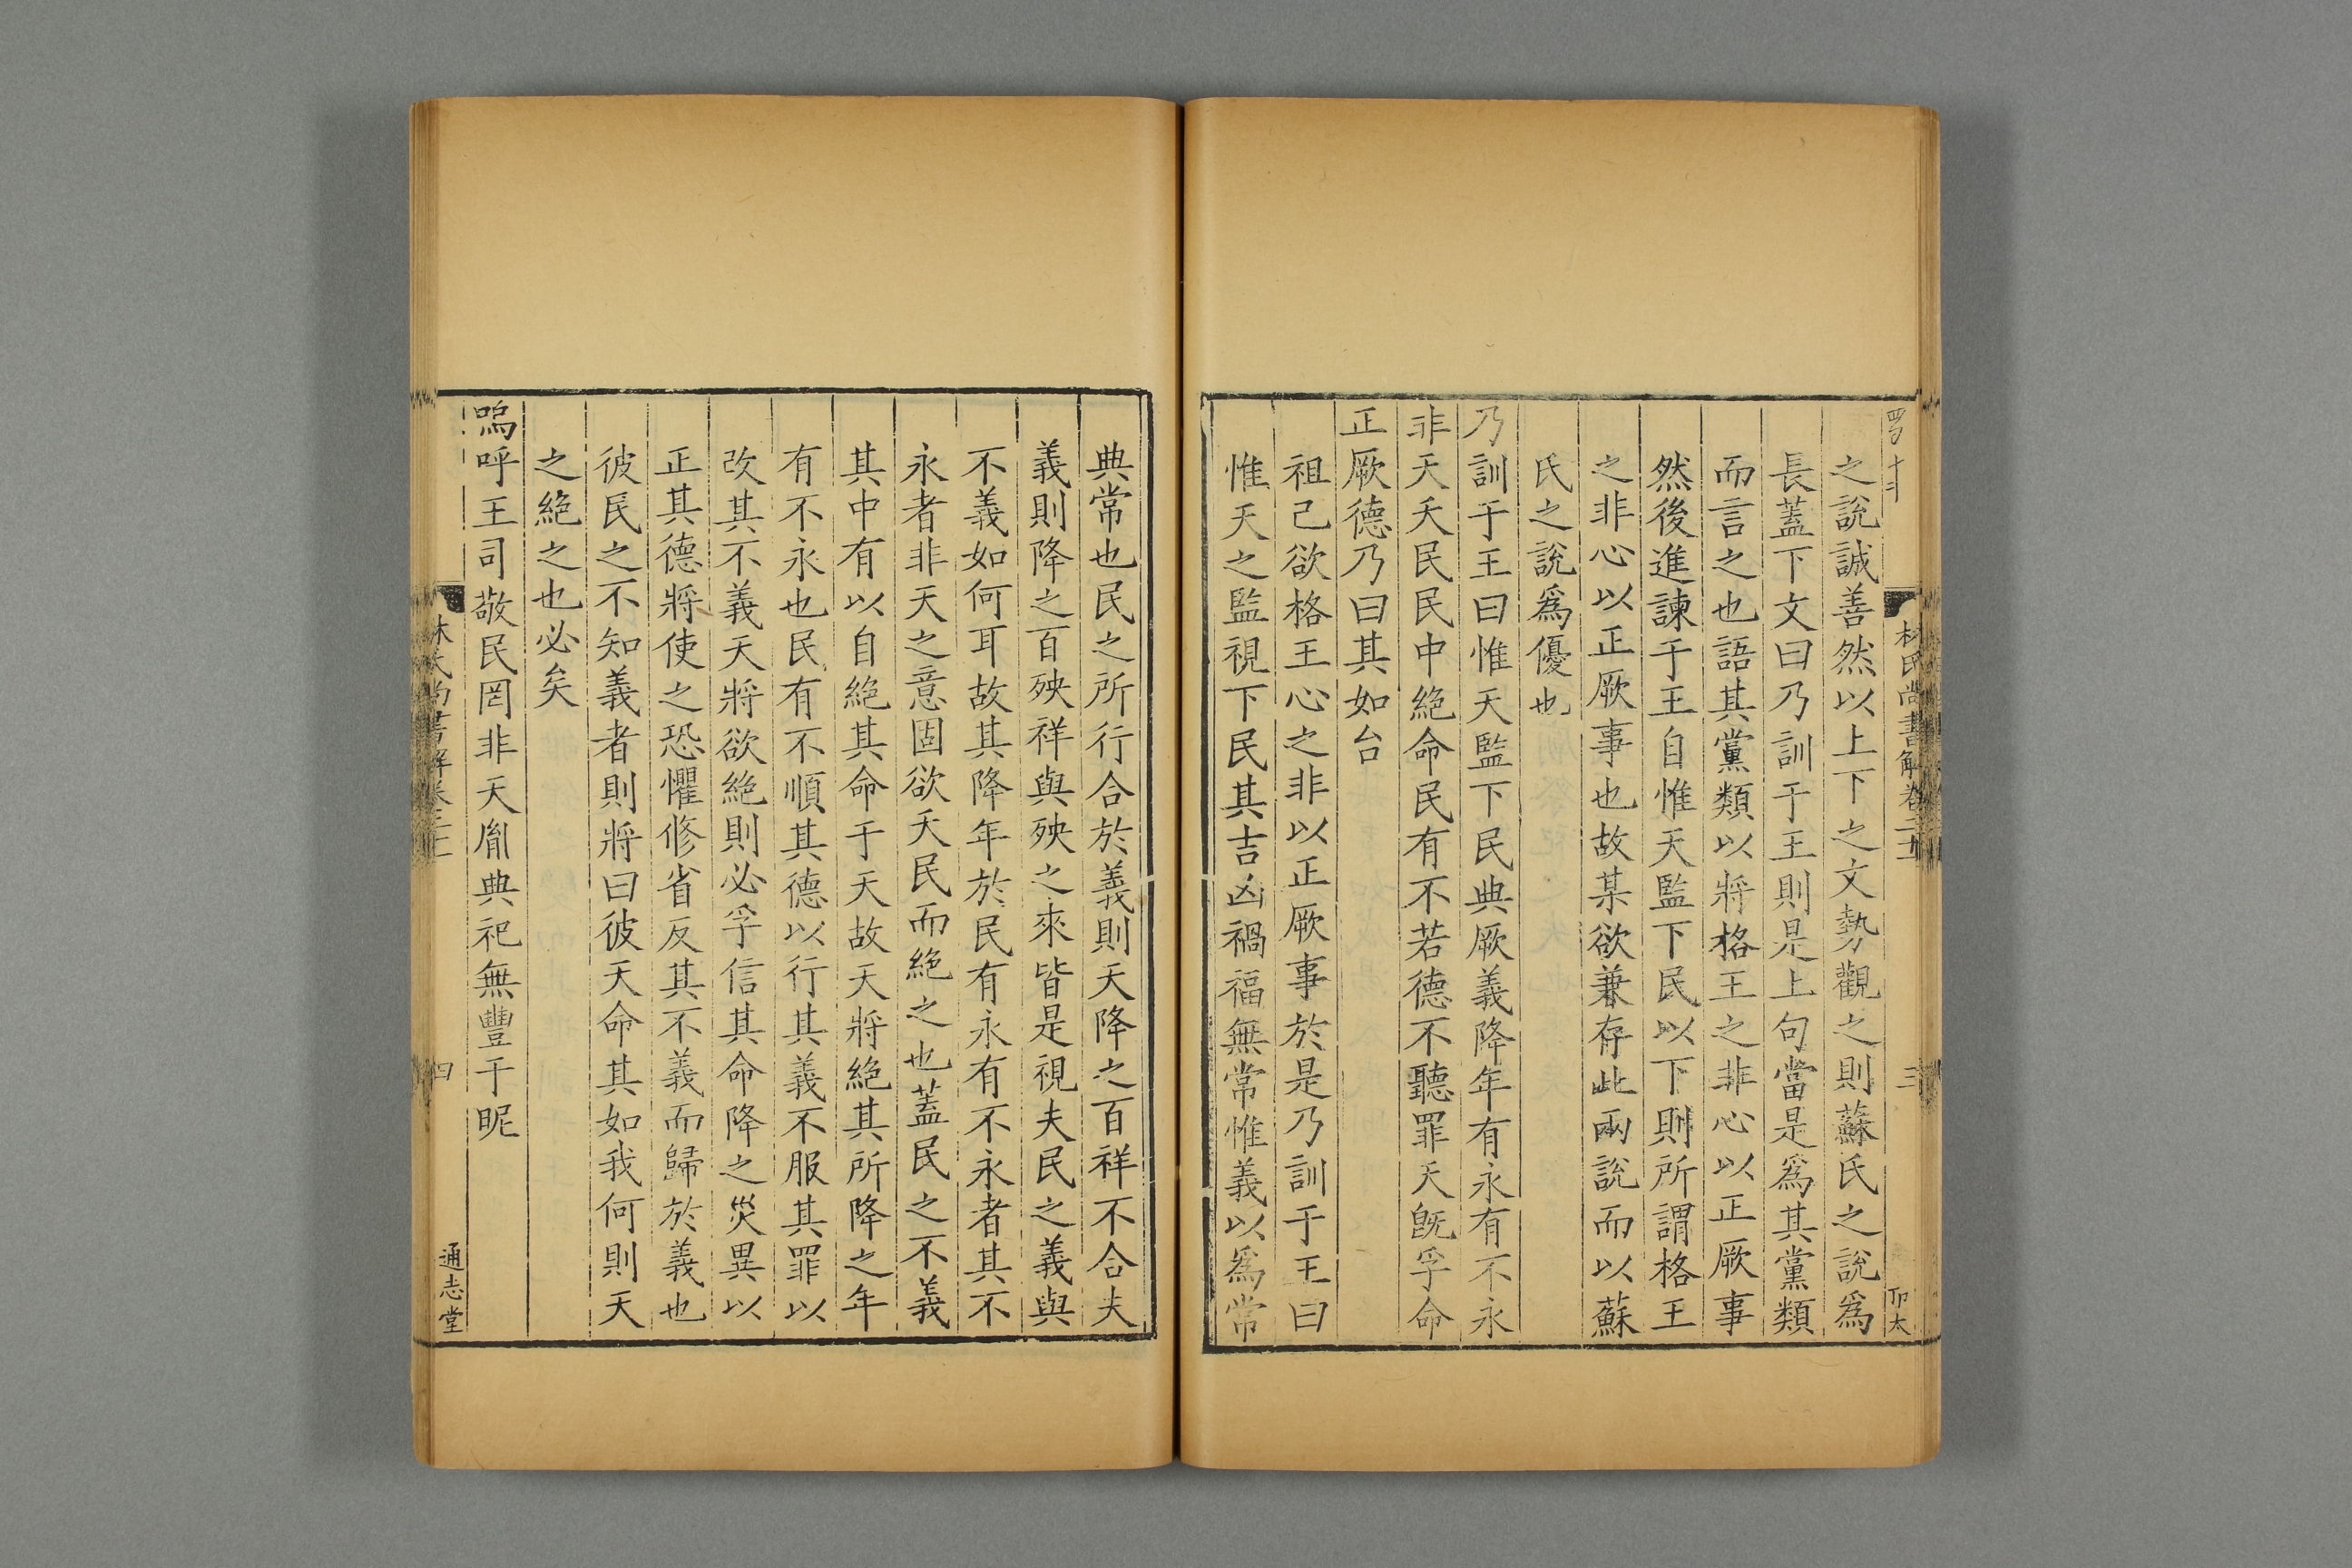 林氏尚書解卷二十
三
之說誠善然以上下之文勢觀之則蘇氏之說爲
長蓋下文曰乃訓于王則是上句當是爲其黨類
而言之也語其黨類以將格王之非心以正厥事
然後進諫于王自惟天監下民以下則所謂格王
之非心以正厥事也故某欲兼存此兩說而以蘇
氏之說爲優也
乃訓于王曰惟天監下民典厥義降年有永有不永
非天夭民民中絕命民有不若德不聽罪天旣孚命
正厥德乃曰其如台
祖己欲格王心之非以正厥事於是乃訓于王曰
惟天之監視下民其吉凶禍福無常惟義以爲常
典常也民之所行合於義則天降之百祥不合夫
義則降之百殃祥與殃之來皆是視夫民之義與
不義如何耳故其降年於民有永有不永者其不
永者非天之意固欲夭民而絕之也蓋民之不義
其中有以自絕其命于天故天將絕其所降之年
有不永也民有不順其德以行其義不服其罪以
改其不義天將欲絕則必孚信其命降之災異以
正其德將使之恐懼修省反其不義而歸於義也
彼民之不知義者則將曰彼天命其如我何則天
之絕之也必矣
嗚呼王司敬民罔非天胤典祀無豐于昵
四
通志堂